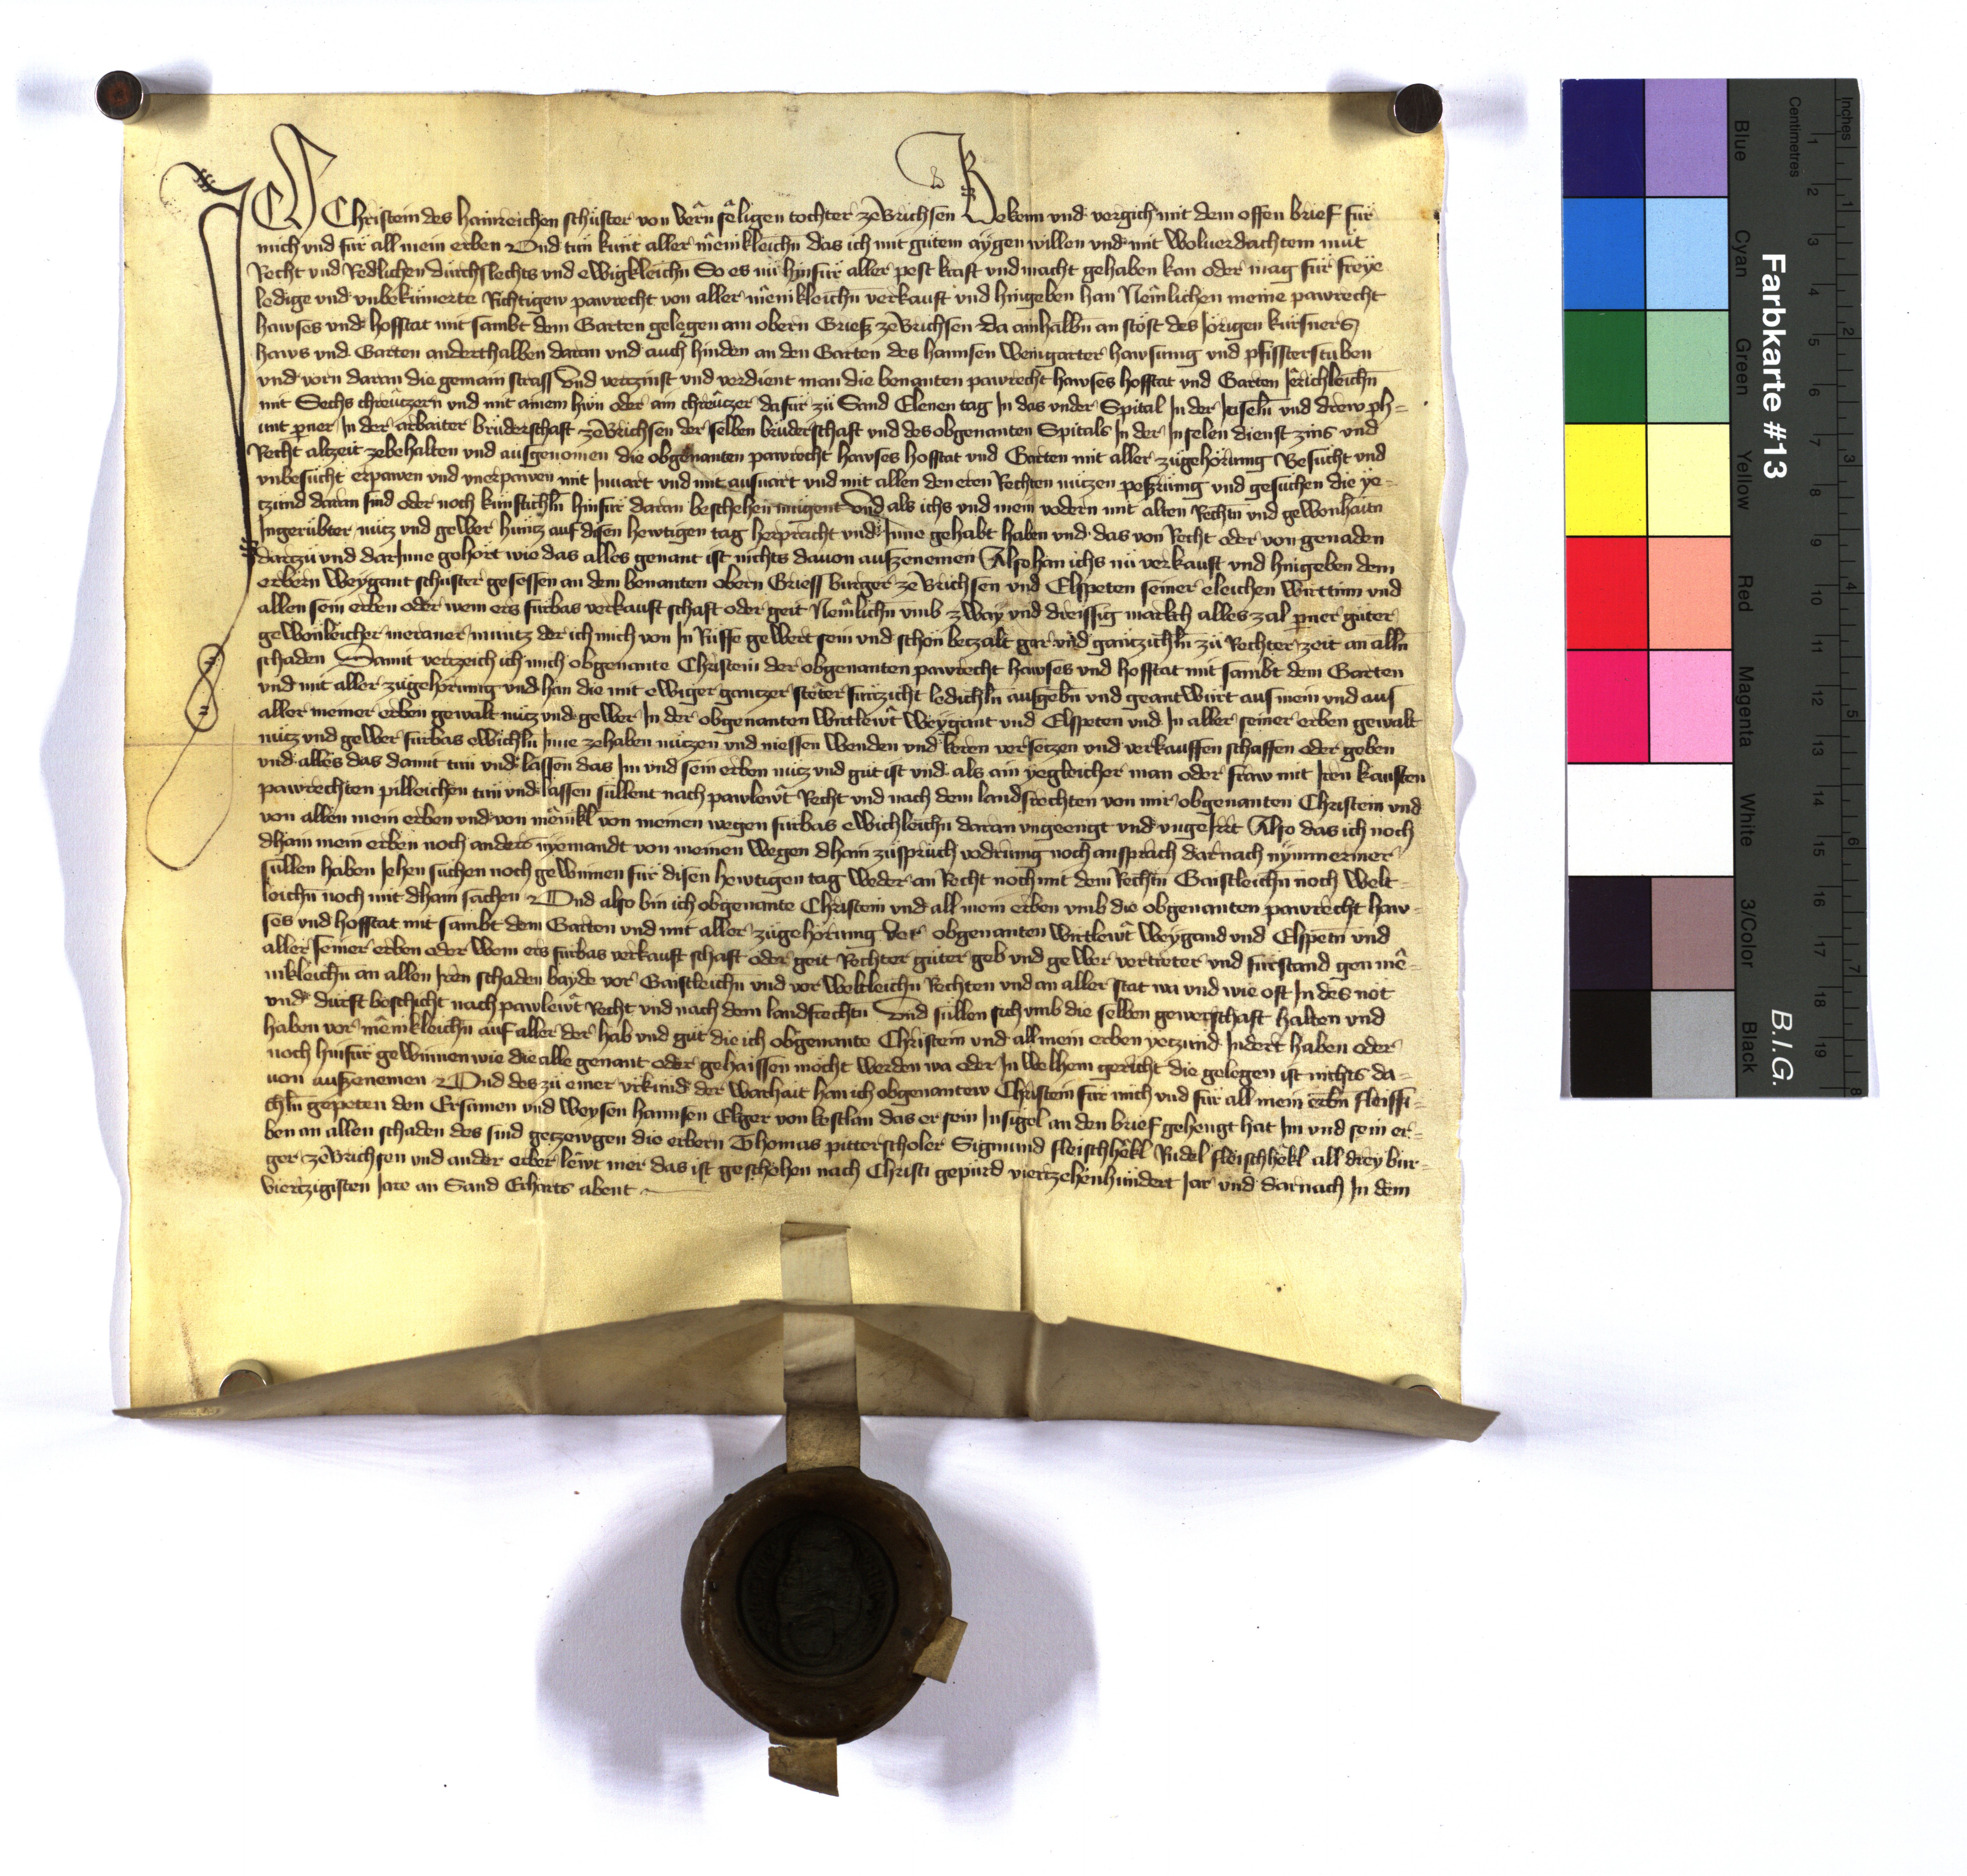 ICH Christein des hainreichen schüster von bern sêligen tochter ze Brichsen Bekenn und vergich mit dem offen brief für
mich und für all mein erben Vnd tun kunt aller mêniklichn das ich mit gütem aygen willen und mit wolverdachtem müt
Recht und Redlichen durchslechts und ewigkleichn So es nü hinfür aller pest kraft und macht gehaben kan oder mag für freye
ledige und unbekümerte Richtigew pawrecht von aller mênikleichn verkauft und hingeben han Nemlichen meine pawrecht
hawses und hofstat mit sambt dem Garten gelegen am obern Grieß ze Brichsen da ainhalbn an stöst des Jörigen kürsners
haws und Garten anderthalben daran und auch hinden an den Garten des hannsen weingarter hawsung und pfissterstuben
und vorn daran die gemain strass Und vertzinst und verdient man die benanten pawrecht hawses hofstat und Garten Jêrichleichn
mit Sechs chreutzern und mit ainem hün oder ain chreutzer dafür zü Sand Elenen tag In das under Spital In der Inseln und drew ph-
unt pner In der arbaiter brüderschaft ze Brichsen der selben brüderschaft und des obgenanten Spitals In der Inselen dienst zins und
Recht altzeit zebehalten und ausgenomen die obgenanten pawrecht hawses hofstat und Garten mit aller zügehörung Besucht und
unbesücht erpawen und unerpawen mit Invart und mit ausvart und mit allen den eren Rechten nützen peßrung und gesüchen die ye-
tzund daran sind oder noch künftichln hinfür daran beschehen mügent Und als ichs und mein vodern mit alten Rechtn und gewonhaitn
Ingerübter nütz und gewer hüntz auf disen hewtigen tag herpracht und Inne gehabt haben und das von Recht oder von genaden
dartzu und darInne gehört wie das alles genant ist nichts davon auszenemen Also han ichs nü verkauft und hingeben dem
erbern Weygant schuster gesessen an dem benanten obern Griess burger ze Brichsen und Elspeten seiner eleichen wirttinn und
allen sein erben oder wem ers fürbas verkauft schaft oder geit Nemlichn umb zway und dreissig markch alles zal pner güter
gewönleicher meraner müntz der ich mich von In Rüffe gewert sein und schon betzalt gar und gantzichln zü Rechter zeit an alln
schaden Damit vertzeich ich mich obgenante Christein der obgenanten pawrecht hawses und hofstat mit sambt dem Garten
und mit aller zügehörung und han die mit ewiger gantzer stêter fürtzicht ledichln aufgebn und geantwürt aus mein und aus
aller meiner erben gewalt nütz und gewer In der obgenanten wirtlewt Weygant und Elspeten und In aller seiner erben gewalt
nütz und gewer fürbas ewichln Inne zehaben nützen und niessen wenden und keren versetzen und verkauffen schaffen oder geben
und alles das damit tun und lassen das Im und sein erben nütz und güt ist und als ain yegleicher man oder fraw mit Iren kauften
pawrechten pilleichen tun und lassen süllent nach pawlewt Recht und nach dem landsrechten von mir obgenanten Christein und
von allen mein erben und von mênikl von meinen wegen fürbas ewichleichn daran ungeengt und ungeIrrt Also das ich noch
dhain mein erben noch anders nyemandt von meinen wegen dhain züsprüch vodrung noch ansprach darnach nymmermer
süllen haben Jehen süchen noch gewinnen für disen hewtigen tag weder an Recht noch mit dem Rechtn Gaistleichn noch welt-
leichn noch mit dhain sachen Und also bin ich obgenante Christein und all mein erben umb die obgenanten pawrecht haw-
ses und hofstat mit sambt dem Garten und mit aller zügehörung der obgenanten wirtlewt Weygand und Elspetn und
aller seiner erben oder wem ers fürbas verkauft schaft oder geit Rechter güter geb und gewer vertreter und fürstand gen mê-
nikleichn an allen Iren schaden bayde vor Gaistleichn und vor weltleichn Rechten und an aller stat wa und wie oft In des nöt
und dürft beschicht nach pawlewt Recht und nach dem landsrechtn Und süllen sich umb die selben gewerschaft halten und
haben vor mênikleichn auf aller der hab und güt die ich obgenante Christein und all mein erben yetzund Indert haben oder
noch hinfür gewinnen wie die alle genant oder gehaissen möcht werden wa oder In welhem gericht die gelegen ist nichts da-
von auszenemen Und des zü einer urkund der warhait han ich obgenantew Christein für mich und für all mein erbn fleissi-
chln gepeten den Ersamen und weysen hannsen Elzer von kostlan das er sein Insigel an den brief gehengt hat Im und sein er-
ben an allen schaden des sind getzewgen die erbern Thomas pitterscholer Sigmund fleischhêkl Rudel fleischhêkl all drey bür-
ger ze Brichsen und ander erber lewt mer das ist geschehen nach Christi gepürd viertzehenhündert Jar und darnach In dem
viertzigisten Jare an Sand Erharts abent
Farbkarte #13
B.I.G.
Inches
Centimetres
1 2 3 4 5 6 7 8 9 10 11 12 13 14 15 16 17 18 19
1 2 3 4 5 6 7 8
Blue
Cyan
Green
Yellow
Red
Magenta
White
3/Color
Black